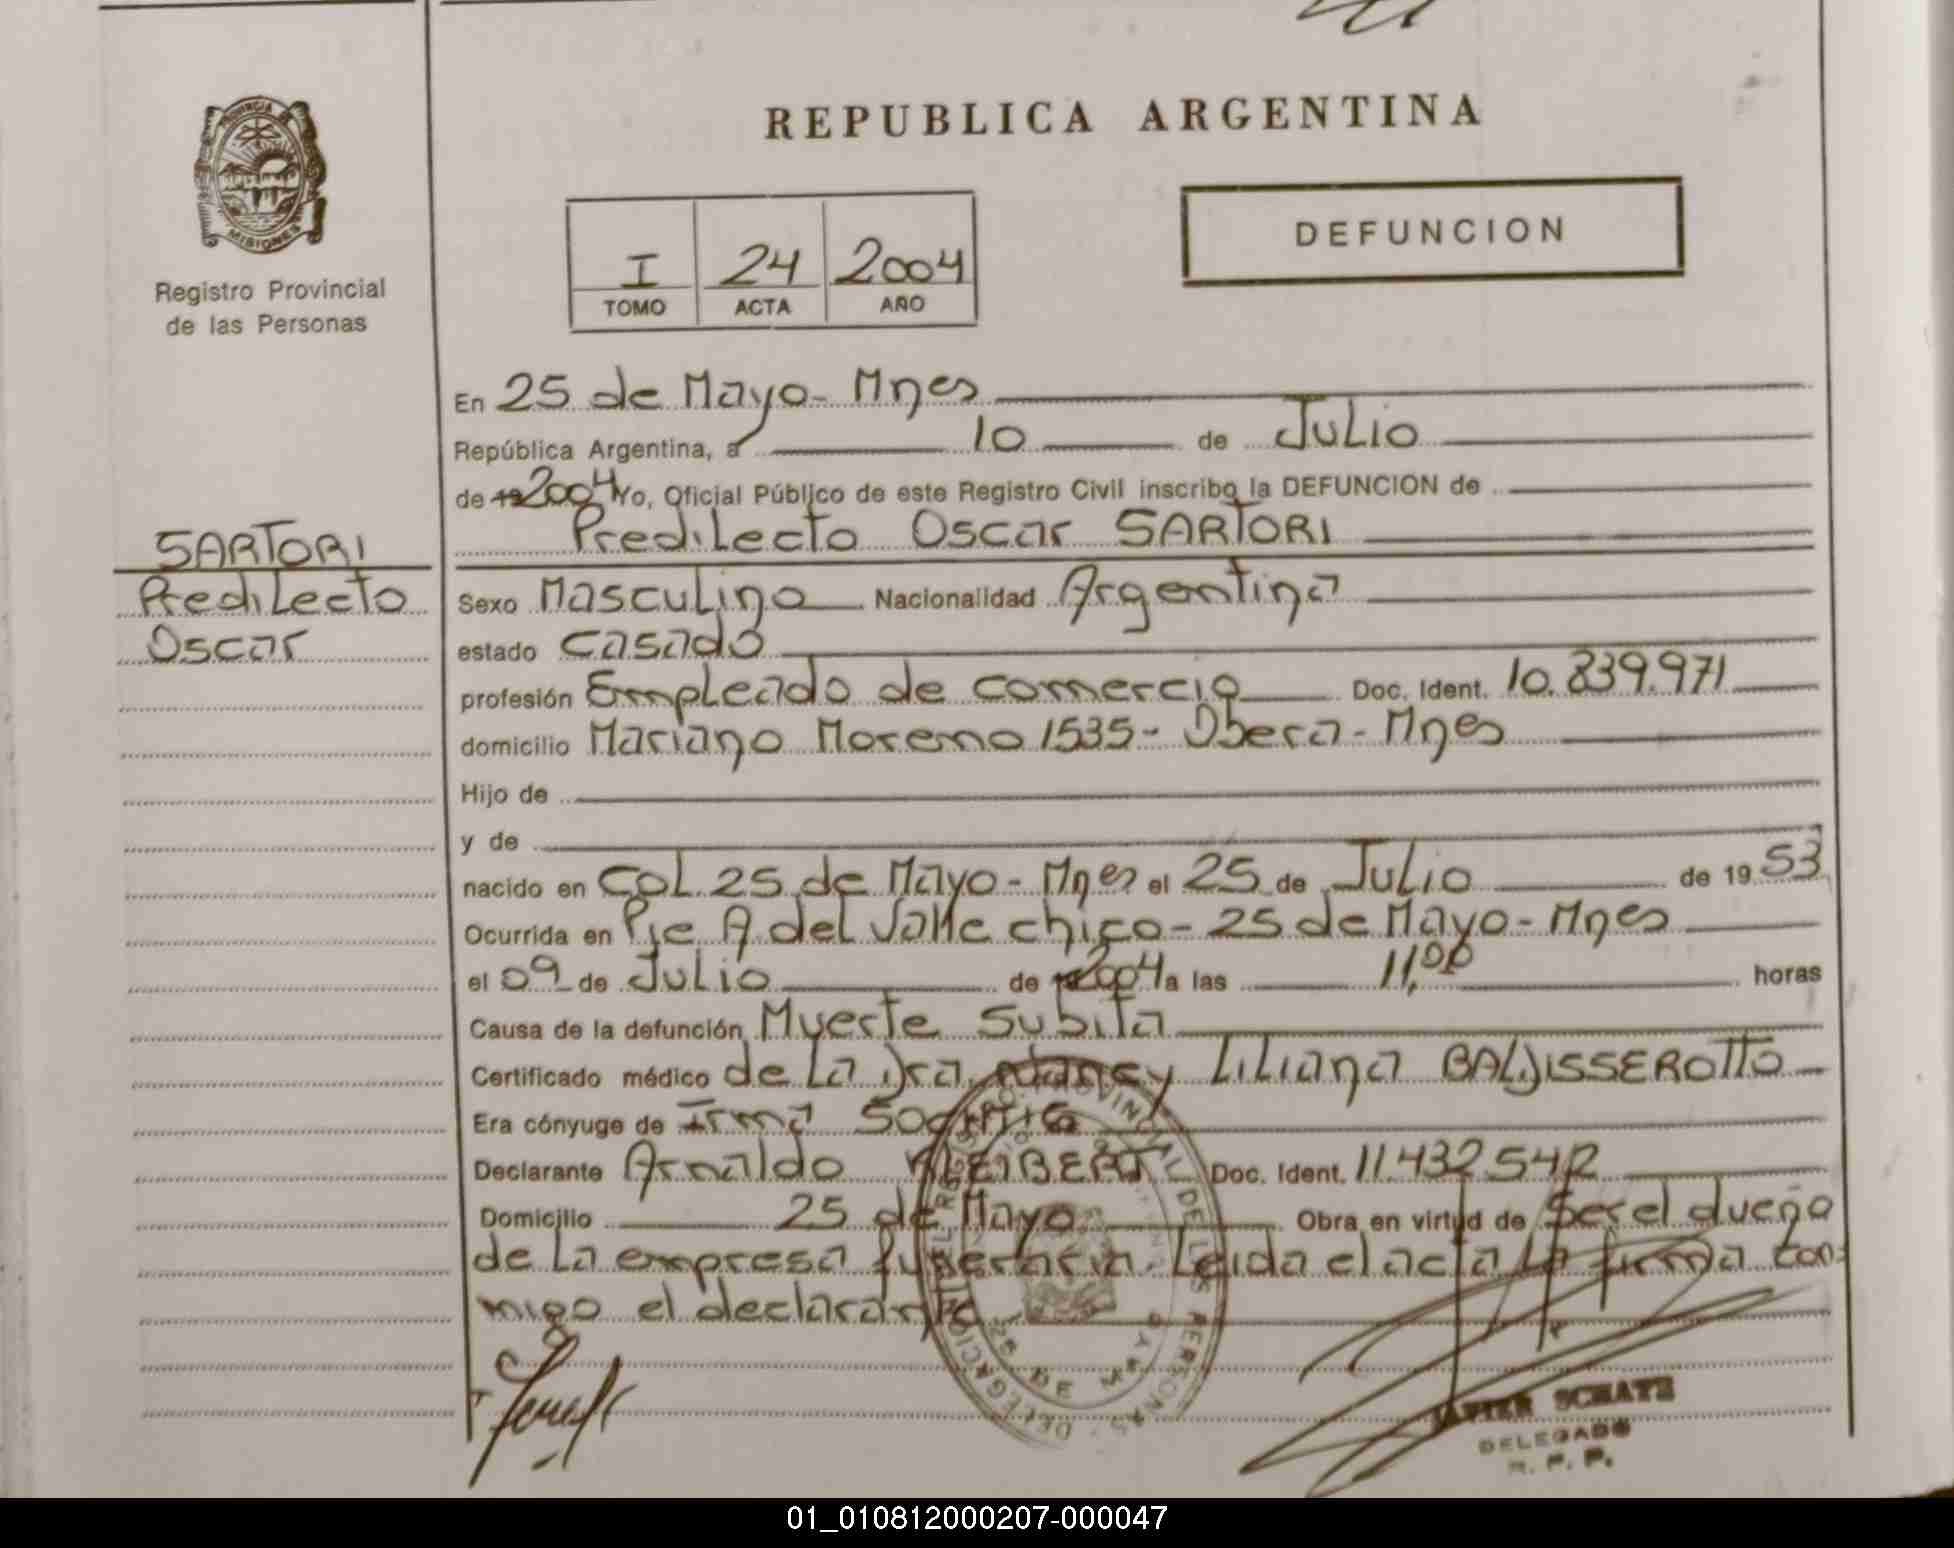 REPUBLICA ARGENTINA
PROVINCIA DE
MISIONES
Registro Provincial
de las Personas
I 24 2004
TOMO ACTA AÑO
DEFUNCION
En 25 de Mayo - Mnes
República Argentina, a 10 de Julio
de 19 2004 Yo, Oficial Público de este Registro Civil inscribo la DEFUNCION de
Predilecto Oscar SARTORI
SARTORI
Predilecto
Oscar
Sexo Masculino Nacionalidad Argentina
estado casado
profesión Empleado de comercio Doc. Ident. 10.839.971
domicilio Mariano Moreno 1535 - Obera - Mnes
Hijo de
y de
nacido en Col. 25 de Mayo - Mnes el 25 de Julio de 19 53
Ocurrida en Pje A. del Valle chico - 25 de Mayo - Mnes
el 09 de Julio de 19 2004 a las 11,00 horas
Causa de la defunción Muerte Subita
Certificado médico de la Dra. Nancy Liliana BALDISSEROTTO
Era cónyuge de Irma
Declarante Arnaldo KLEIBERT Doc. Ident. 11.432.542
Domicilio 25 de Mayo Obra en virtud de Ser el dueño
de la empresa funeraria. Leida el acta la firma con-
migo el declarante
REGISTRO PROVINCIAL DE LAS PERSONAS
DELEGACION
25 DE MAYO
JAVIER SCHATZ
DELEGADO
R. P. P.
01_010812000207-000047